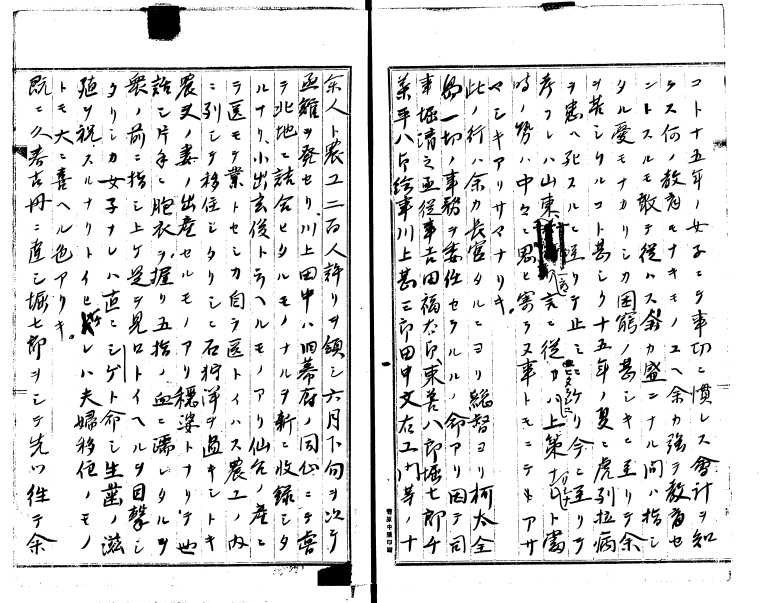 コト十五年ノ女子ニテ事功ニ慣レス會計ヲ知
ラス何ノ教育モナキモノユヘ余カ強テ教育セ
ントスルモ敢テ従ハス余カ盛ニナル間ハ指シ
タル憂モナカリシカ困窮ノ甚シキニ至リテ余
ヲ苦シケルコト甚シク十五年ノ夏ニ虎列拉病
ヲ患ヘ死スルニ至リテ止ミ
今ニ至リテ
考フレハ山東
言ニ従フハ上策
時ノ勢ハ中々ニ思ヒ寄ラヌ事トモニテ
アサ
マシキアリサマナリキ。
此ノ行ハ余カ長官タルニヨリ総督ヨリ柯太全
島一切ノ事務ヲ委任セラルルノ命アリ因テ司
事堀清之亟従事吉田福太郎、東善八郎堀七郎千
葉平八郎絵事川上甚三郎田中文右エ門等ノ十
余人ト農工二百人許リヲ領シ六月下旬ヲ次テ
函館ヲ発セリ、川上田中ハ旧幕府ノ同心ニテ喜
ラ此地ニ詰合ヒタルモノナルヲ新ニ收録シタ
ルナリ、小出玄俊トテヘルモノアリ仙台ノ産ニ
テ医モテ業トセシカ自ラ医トイハス農工ノ内
ニ列シテ移住シタリシニ石狩洋ヲ過キシトキ
農夫ノ妻ノ出産セルモノアリ穏婆トナリテ世
話シ片手ニ胞衣ヲ握リ五指ノ血ニ濡レタルヲ
衆ノ前ニ指シ上ケ是ヲ見ロトイヘルヲ目撃シ
タリシカ女子ナレハ直ニシゲト命シ生茁ノ滋
殖ヲ祝スルナリトイヒ
レハ夫婦移住ノモノ
トモ大ニ喜ヘル色アリキ。
既ニ久春古丹ニ直シ堀七郎ヲシテ先ツ往テ余